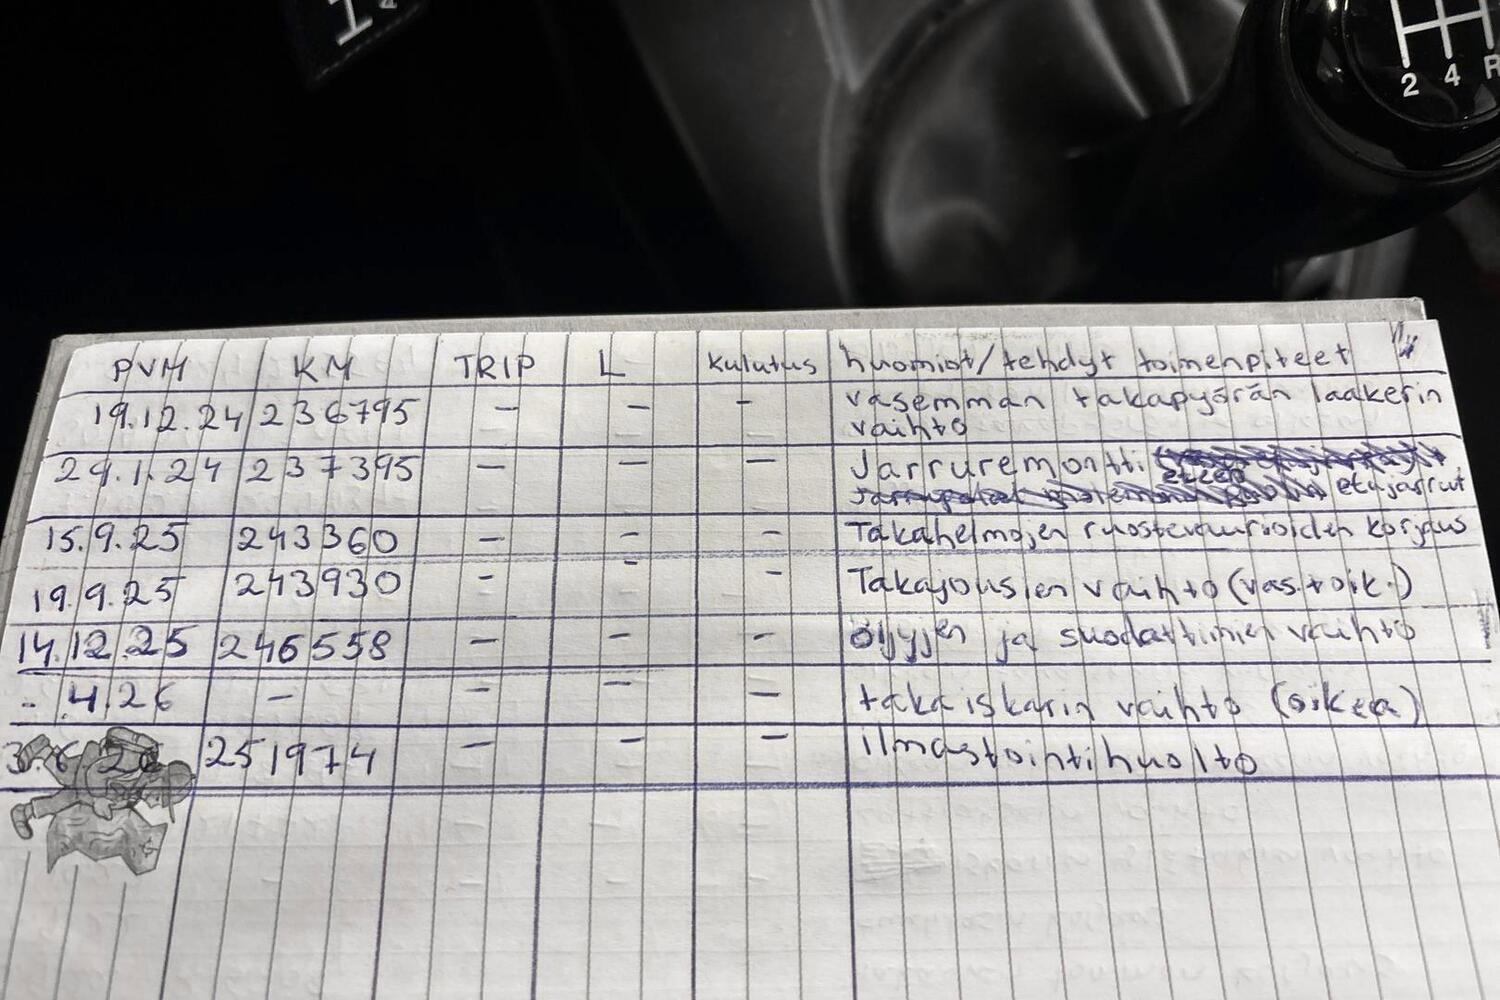 2 4 R
PVM KM TRIP L Kulutus huomiot/tehdyt toimenpiteet
19.12.24 236795 - - - vasemman takapyörän laakerin
vaihto
29.1.24 237395 - - - Jarruremontti
eteen
etujarrut
15.9.25 243360 - - - Takahelmojen ruostevaurioiden korjaus
19.9.25 243930 - - - Takajousien vaihto (vas.+oik.)
14.12.25 246558 - - - öljyjen ja suodattimien vaihto
-.4.26 - - - - takaiskarin vaihto (oikea)
251974 - - - ilmastointihuolto